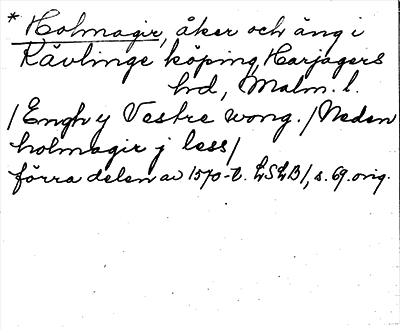 * Holmagir, åker och äng i
Kävlinge köping, Harjagers
hd, Malm. l.
/Engh y Vestre wong. / Neden
holmagir j less/
förra delen av 1570-t. LSLB1, s. 69. orig.